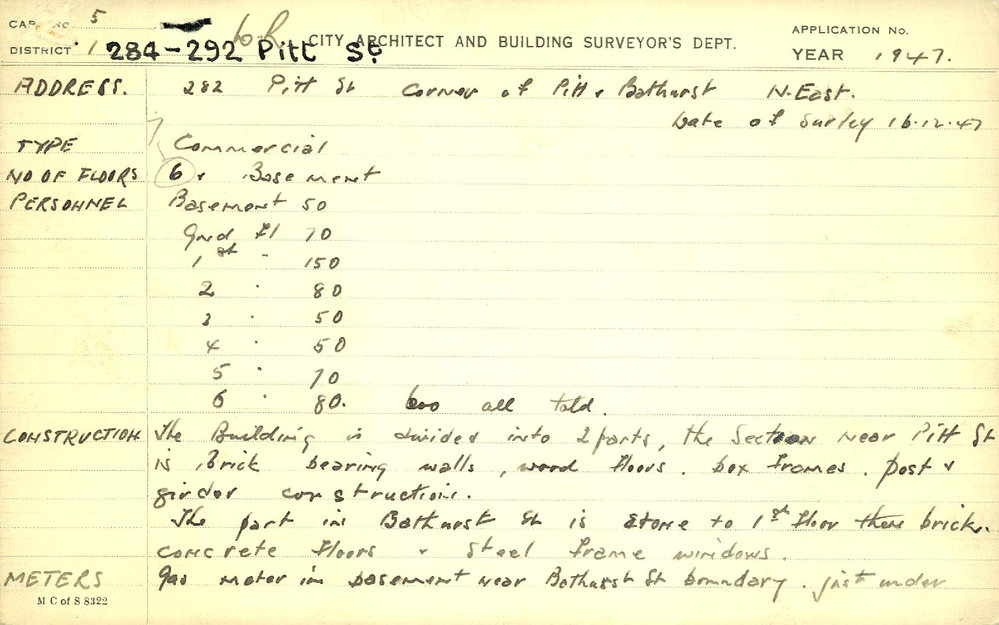 CARD No. 5
DISTRICT 1
284-292 Pitt St.
CITY ARCHITECT AND BUILDING SURVEYOR'S DEPT.
APPLICATION No.
YEAR 1947.
ADDRESS. 282 Pitt St Corner of Pitt & Bathurst N.East.
Date of Survey 16.12.47
TYPE Commercial
NO OF FLOORS 6 & Basement
PERSONNEL Basement 50
Grnd Fl 70
1st " 150
2 " 80
3 " 50
4 " 50
5 " 70
6 " 80. 600 all told.
CONSTRUCTION The Building is divided into 2 parts, the Section near Pitt St
is Brick bearing walls, wood floors. box frames. post &
girder construction.
The part in Bathurst St is stone to 1st floor then brick.
concrete floors & steel frame windows.
METERS Gas meter in basement near Bathurst St boundary. just under
M C of S 8322